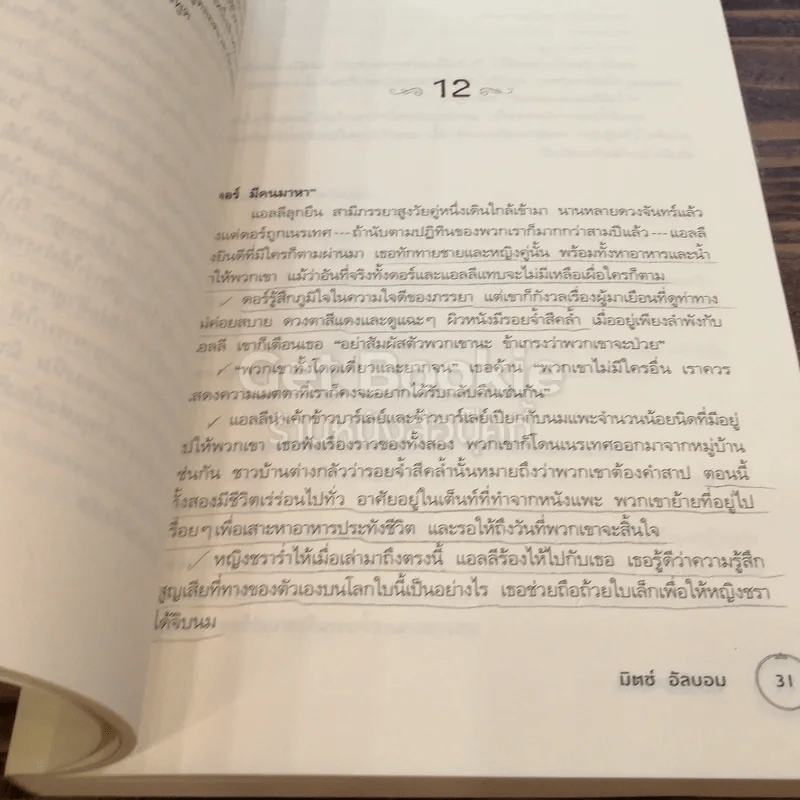 12
ดอร์ มีคนมาหา"
แอลลีลุกยืน สามีภรรยาสูงวัยคู่หนึ่งเดินใกล้เข้ามา นานหลายดวงจันทร์แล้ว
งแต่ดอร์ถูกเนรเทศ---ถ้านับตามปฏิทินของพวกเราก็มากกว่าสามปีแล้ว---แอลลี
งยินดีที่มีใครก็ตามผ่านมา เธอทักทายชายและหญิงคู่นั้น พร้อมทั้งหาอาหารและน้ำ
าให้พวกเขา แม้ว่าอันที่จริงทั้งดอร์และแอลลีแทบจะไม่มีเหลือเผื่อใครก็ตาม
ดอร์รู้สึกภูมิใจในความใจดีของภรรยา แต่เขาก็กังวลเรื่องผู้มาเยือนที่ดูท่าทาง
ม่ค่อยสบาย ดวงตาสีแดงและดูแฉะๆ ผิวหนังมีรอยจ้ำสีคล้ำ เมื่ออยู่เพียงลำพังกับ
อลลี เขาก็เตือนเธอ "อย่าสัมผัสตัวพวกเขานะ ข้าเกรงว่าพวกเขาจะป่วย"
"พวกเขาทั้งโดดเดี่ยวและยากจน" เธอค้าน "พวกเขาไม่มีใครอื่น เราควร
สดงความเมตตาที่เราก็คงจะอยากได้รับกลับคืนเช่นกัน"
แอลลีนำเค้กข้าวบาร์เลย์และข้าวบาร์เลย์เปียกกับนมแพะจำนวนน้อยนิดที่มีอยู่
ปให้พวกเขา เธอฟังเรื่องราวของทั้งสอง พวกเขาก็โดนเนรเทศออกมาจากหมู่บ้าน
ช่นกัน ชาวบ้านต่างกลัวว่ารอยจ้ำสีคล้ำนั้นหมายถึงว่าพวกเขาต้องคำสาป ตอนนี้
ั้งสองมีชีวิตเร่ร่อนไปทั่ว อาศัยอยู่ในเต็นท์ที่ทำจากหนังแพะ พวกเขาย้ายที่อยู่ไป
รื่อยๆเพื่อเสาะหาอาหารประทังชีวิต และรอให้ถึงวันที่พวกเขาจะสิ้นใจ
หญิงชราร่ำไห้เมื่อเล่ามาถึงตรงนี้ แอลลีร้องไห้ไปกับเธอ เธอรู้ดีว่าความรู้สึก
สูญเสียที่ทางของตัวเองบนโลกใบนี้เป็นอย่างไร เธอช่วยถือถ้วยใบเล็กเพื่อให้หญิงชรา
ได้จิบนม
มิตช์ อัลบอม 31
Get!Bookie